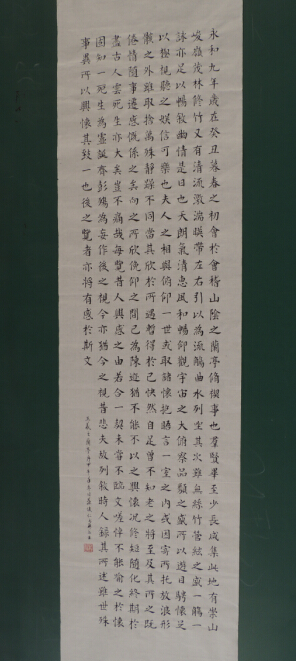 永和九年歲在癸丑暮春之初會於會稽山陰之蘭亭脩禊事也羣賢畢至少長咸集此地有崇山
峻嶺茂林脩竹又有清流激湍暎帶左右引以為流觴曲水列坐其次雖無絲竹管絃之盛一觴一
詠亦足以暢敘幽情是日也天朗氣清惠風和暢仰觀宇宙之大俯察品類之盛所以遊目騁懷足
以極視聽之娛信可樂也夫人之相與俯仰一世或取諸懷抱晤言一室之內或因寄所托放浪形
骸之外雖取捨萬殊靜躁不同當其欣於所遇暫得於己快然自足曾不知老之將至及其所之既
倦情隨事遷感慨係之矣向之所欣俛仰之間已為陳迹猶不能不以之興懷況終短隨化終期於
盡古人云死生亦大矣豈不痛哉每覽昔人興感之由若合一契未嘗不臨文嗟悼不能喻之於懷
固知一死生為虛誕齊彭殤為妄作後之視今亦猶今之視昔悲夫故列敘時人錄其所述雖世殊
事異所以興懷其致一也後之覽者亦將有感於斯文